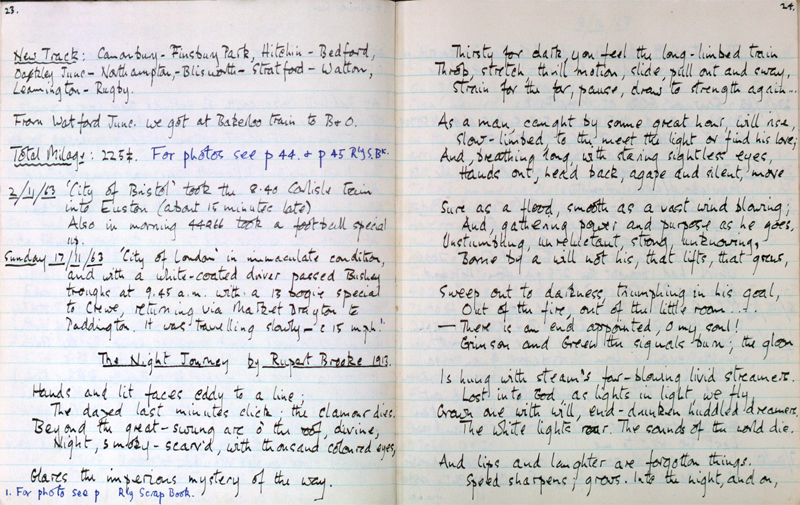 23.
New Track: Canonbury - Finsbury Park, Hitchin - Bedford,
Oakley Junc - Northampton, - Blisworth - Stratford - Walton,
Leamington - Rugby.
From Watford Junc. we got at Bakerloo train to B & O.
Total Milage: 225¼. For photos see p 44. & p 45 Rly S. Bk.
2/11/63 'City of Bristol' took the 8.40 Carlisle train
into Euston (about 15 minutes late)
Also in morning 44266 took a football special
up.
Sunday 17/11/63 'City of London' in immaculate condition,
and with a white-coated driver passed Bushey
troughs at 9.45 a.m. with a 13 bogie special
to Crewe, returning via Market Drayton to
Paddington. It was travelling slowly - c 15 mph!
The Night Journey by Rupert Brooke 1913.
Hands and lit faces eddy to a line;
The dazed last minutes click; the clamour dies.
Beyond the great-swung arc o' the roof, divine,
Night, smoky-scarv'd, with thousand coloured eyes,
Glares the imperious mystery of the way.
1. For photo see p Rly Scrap Book.
24.
Thirsty for dark, you feel the long-limbed train
Throb, stretch, thrill motion, slide, pull out and sway,
Strain for the far, pause, draw to strength again..
As a man, caught by some great hour, will rise,
Slow-limbed, to the meet the light or find his love;
And, breathing long, with staring sightless eyes,
Hands out, head back, agape and silent, move
Sure as a flood, smooth as a vast wind blowing;
And, gathering power and purpose as he goes,
Unstumbling, unreluctant, strong, unknowing,
Borne by a will not his, that lifts, that grows,
Sweep out to darkness, triumphing in his goal,
Out of the fire, out of the little room....
- There is an end appointed, O my soul!
Crimson and Green the signals burn; the gloom
Is hung with steam's far-blowing livid streamers.
Lost into God, as lights in light, we fly,
Grown one with will, end-drunken huddled dreamers,
The white lights roar. The sounds of the world die.
And lips and laughter are forgotten things.
Speed sharpens; grows. Into the night, and on,